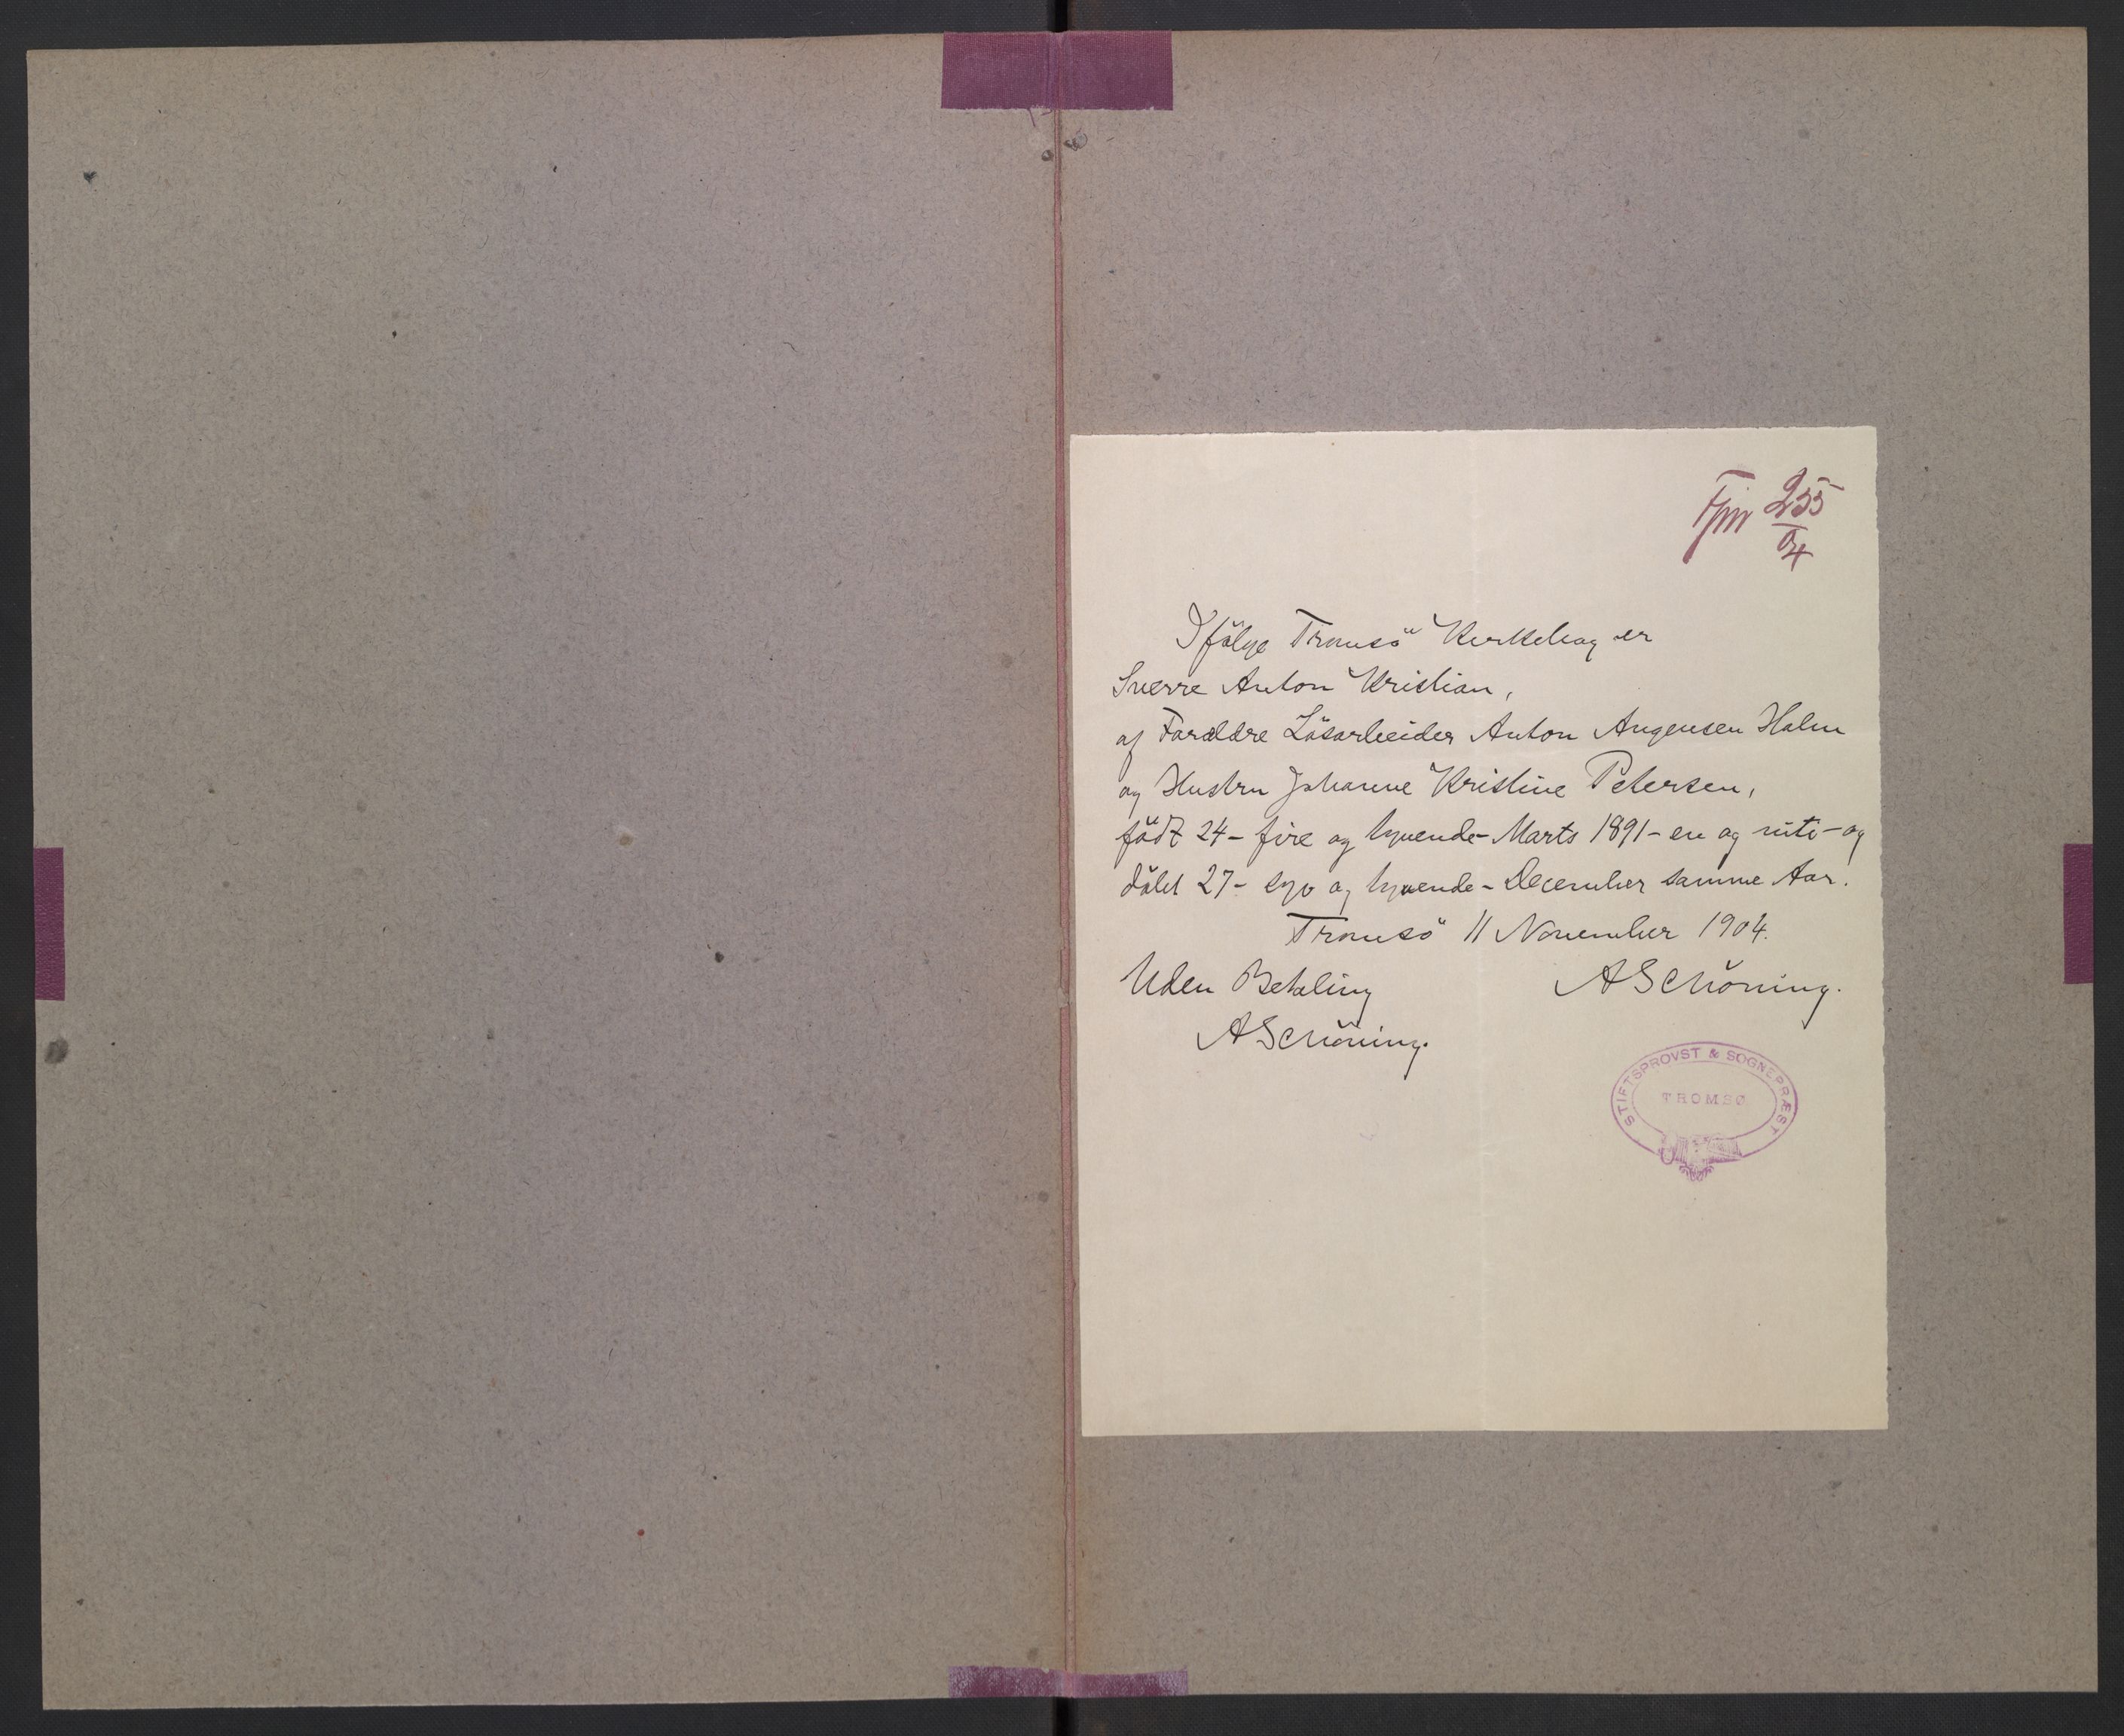 255
04
Ifölge Tromsö Kirkebog er
Sverre Anton Kristian,
af Forældre Lösarbeider Anton Angensen Holm
og Hustru Johanne Kristine Petersen,
född 24- fire og tyvende- Marts 1891- en og niti- og
döbt 27- syv og tyvende- December samme Aar.
Tromsö 11 November 1904.
Uden Betaling
ASchöning.
ASchöning.
STIFTSPROVST & SOGNEPRÆST
TROMSØ